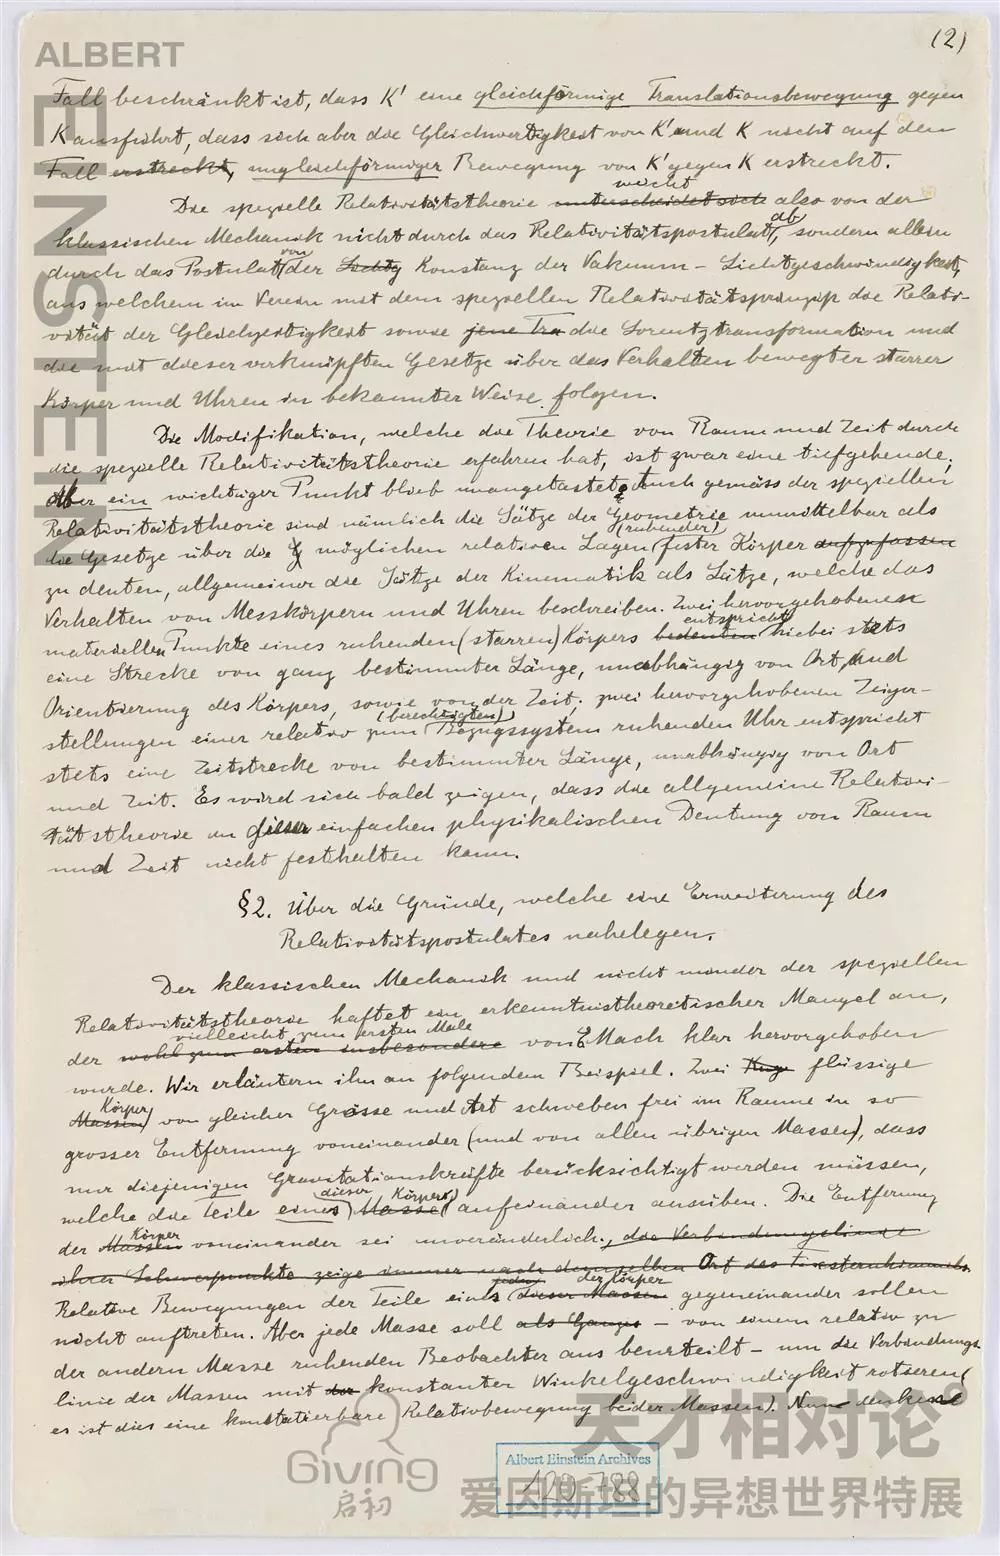 (2)
ALBERT
EINSTEIN
Fall beschränkt ist, dass K' eine gleichförmige Translationsbewegung gegen
K ausführt, dass sich aber die Gleichwertigkeit von K' und K nicht auf den
Fall erstreckt, ungleichförmiger Bewegung von K' gegen K erstreckt.
Die spezielle Relativitätstheorie unterscheidet sich weicht also von der
klassischen Mechanik nicht durch das Relativitätspostulat ab, sondern allein
durch das Postulat von der Lichtg Konstanz der Vakuum-Lichtgeschwindigkeit,
aus welchem im Verein mit dem speziellen Relativitätsprinzip die Relati-
vität der Gleichzeitigkeit sowie jene Tra die Lorentztransformation und
die mit dieser verknüpften Gesetze über das Verhalten bewegter starrer
Körper und Uhren in bekannter Weise folgen.
Die Modifikation, welche die Theorie von Raum und Zeit durch
die spezielle Relativitätstheorie erfahren hat, ist zwar eine tiefgehende;
Aber ein wichtiger Punkt blieb unangetastet. Auch gemäss der speziellen
Relativitätstheorie sind nämlich die Sätze der Geometrie unmittelbar als
die Gesetze über die möglichen relativen Lagen (ruhender) fester Körper aufzufassen
zu deuten, allgemeiner die Sätze der Kinematik als Sätze, welche das
Verhalten von Messkörpern und Uhren beschreiben. Zwei hervorgehobenen
materiellen Punkte eines ruhenden (starren) Körpers bedeuten entspricht hiebei stets
eine Strecke von ganz bestimmter Länge, unabhängig von Ort und
Orientierung des Körpers, sowie von der Zeit; zwei hervorgehobenen Zeiger-
stellungen einer relativ zum (berechtigten) Bezugssystem ruhenden Uhr entspricht
stets eine Zeitstrecke von bestimmter Länge, unabhängig von Ort
und Zeit. Es wird sich bald zeigen, dass die allgemeine Relativi-
tätstheorie an dieser einfachen physikalischen Deutung von Raum
und Zeit nicht festhalten kann.
§2. Über die Gründe, welche eine Erweiterung des
Relativitätspostulates nahelegen.
Der klassischen Mechanik und nicht minder der speziellen
Relativitätstheorie haftet ein erkenntnistheoretischer Mangel an,
der wohl zum ersten insbesondere vielleicht zum ersten Male von E. Mach klar hervorgehoben
wurde. Wir erläutern ihn an folgendem Beispiel. Zwei Kug flüssige
Massen Körper von gleicher Grösse und Art schweben frei im Raume in so
grosser Entfernung voneinander (und von allen übrigen Massen), dass
nur diejenigen Gravitationskräfte berücksichtigt werden müssen,
welche die Teile eines dieser Masse Körper aufeinander ausüben. Die Entfernung
der Massen Körper voneinander sei unveränderlich., die Verbindungslinie
ihrer Schwerpunkte zeige immer nach demselben Ort des Fixsternhimmels.
Relative Bewegungen der Teile eines dieser Massen der Körper gegeneinander sollen
nicht auftreten. Aber jede Masse soll als Ganzes – von einem relativ zu
der andern Masse ruhenden Beobachter aus beurteilt – um die Verbindungs-
linie der Massen mit der konstanter Winkelgeschwindigkeit rotieren (
es ist dies eine konstatierbare Relativbewegung beider Massen). Nun denken
天才相对论
Giving
启初
Albert Einstein Archives
120 788
爱因斯坦的异想世界特展